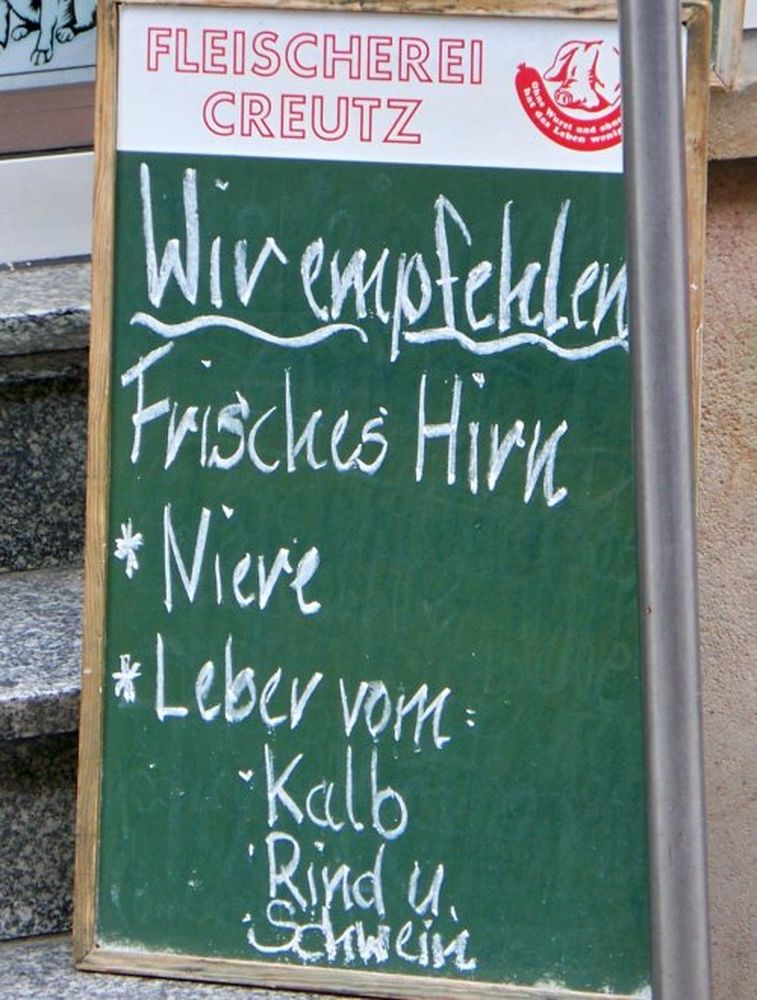 FLEISCHEREI
CREUTZ
Ohne Wurst und
hat das Leben
Wir empfehlen
Frisches Hirn
* Niere
* Leber vom:
· Kalb
· Rind u.
· Schwein